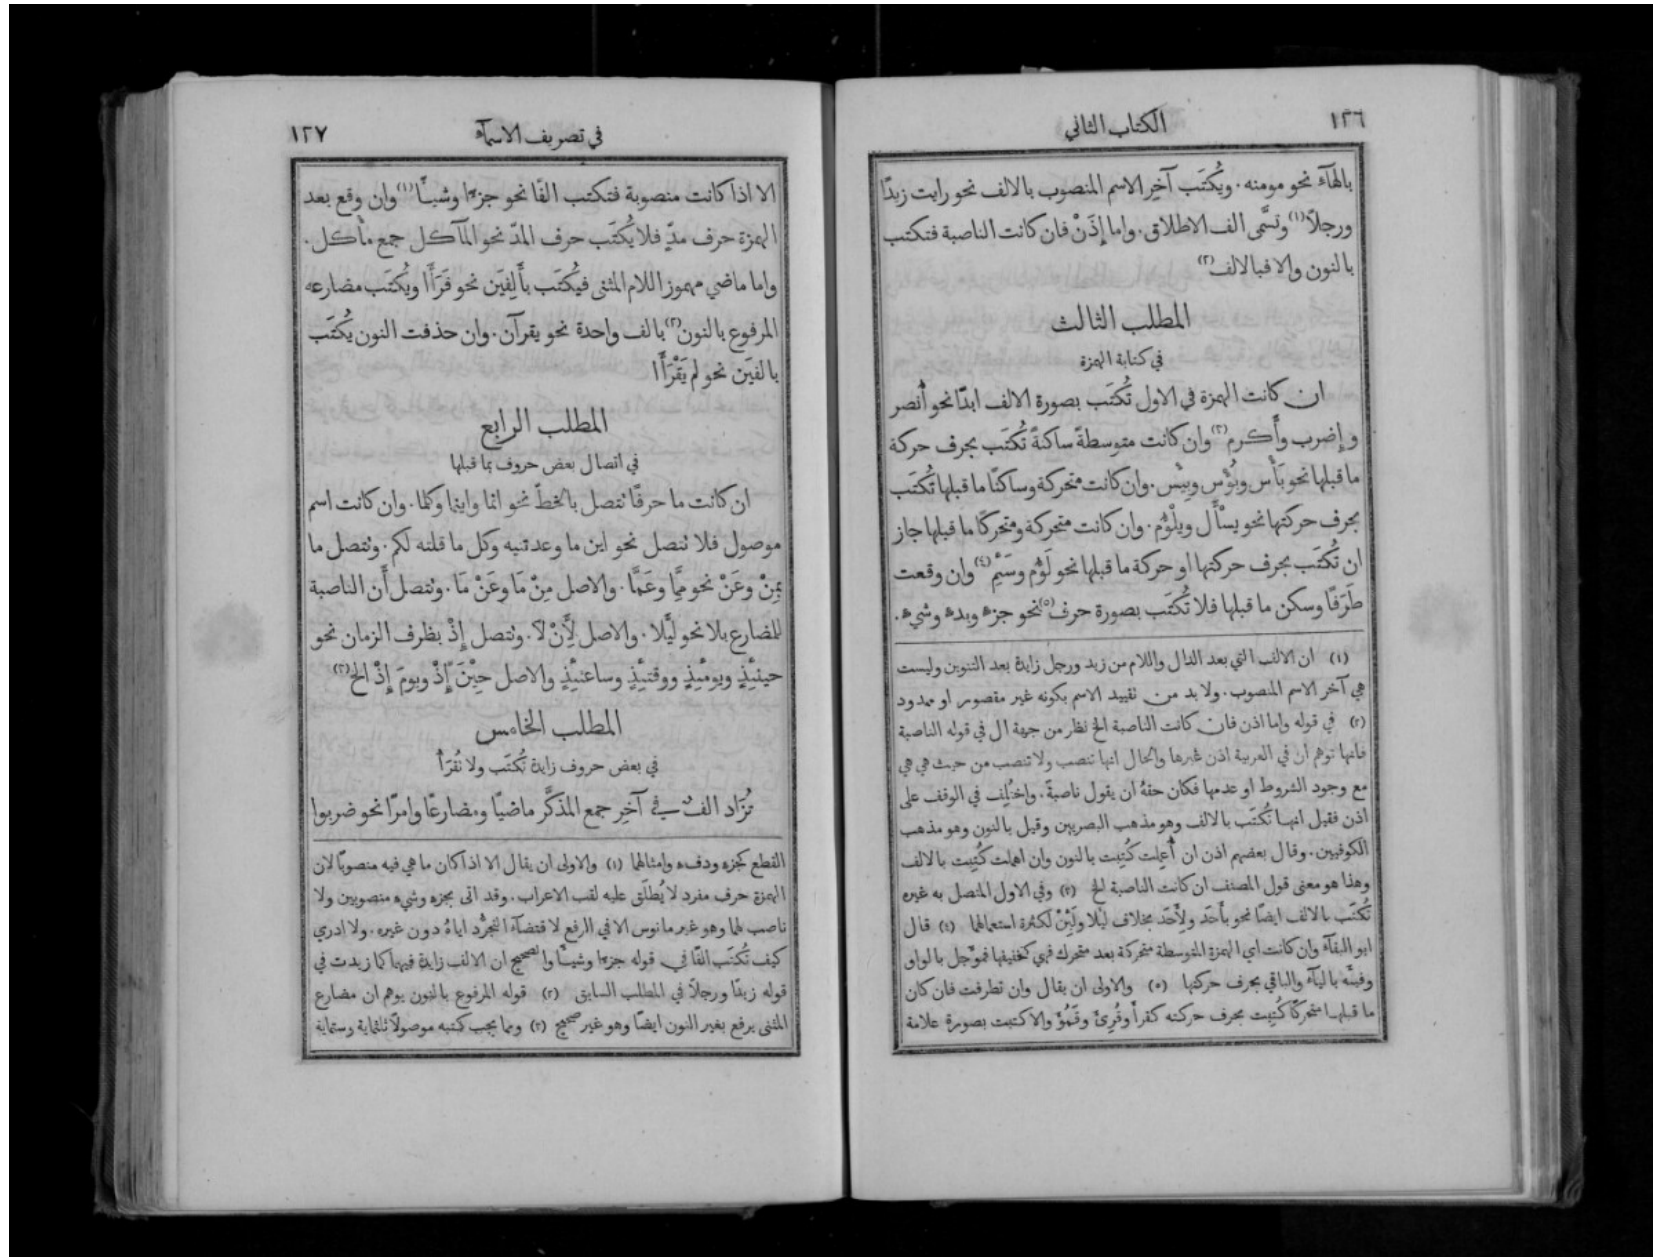 ١٢٦
الكتاب الثاني
بالهآء نحو مومنه. ويُكتَب آخِر الاسم المنصوب بالالف نحو رايت زيدًا
ورجلاً (١) وتسَّمى الف الاطلاق. واما إِذَنْ فان كانت الناصبة فتكتب
بالنون والا فبالالف (٢)
المطلب الثالث
في كتابة الهمزة
ان كانت الهمزة في الاول تُكتَب بصورة الالف ابدًا نحو أُنصر
وإضرب وأَكرم (٣) وان كانت متوسطةً ساكنةً تُكتَب بحرف حركة
ما قبلها نحو بَأْس وبُؤْس وبِيْس. وان كانت متحركة وساكنًا ما قبلها تُكتَب
بحرف حركتها نحو يسْأَل ويلْؤُم. وان كانت متحركة ومتحركًا ما قبلها جاز
ان تُكتَب بحرف حركتها او حركة ما قبلها نحو لَؤُم وسَئِم (٤) وان وقعت
طَرَفًا وسكن ما قبلها فلا تُكتَب بصورة حرف (٥) نحو جزء وبدء وشيء.
(١) ان الالف التي بعد الدال واللام من زيد ورجل زايدة بعد التنوين وليست
هي آخر الاسم المنصوب. ولا بد من تقييد الاسم بكونه غير مقصور او ممدود
(٢) في قوله واما اذن فان كانت الناصبة الخ نظر من جهة ال في قوله الناصبة
فانها توهم ان في العربية اذن غيرها والحال انها تنصب ولا تنصب من حيث هي هي
مع وجود الشروط او عدمها فكان حقهُ ان يقول ناصبةً. واختُلِف في الوقف على
اذن فقيل انها تُكتَب بالالف وهو مذهب البصريين وقيل بالنون وهو مذهب
الكوفيين. وقال بعضهم اذن ان أُعمِلت كُتِبت بالنون وان اهملت كُتِبت بالالف
وهذا هو معنى قول المصنف ان كانت الناصبة الخ (٣) وفي الاول المتصل به غيره
تُكتَب بالالف ايضًا نحو بأَحَد ولِأَحَد بخلاف لئلا ولَئِنْ لكثرة استعمالها (٤) قال
ابو البقآء وان كانت اي الهمزة المتوسطة متحركة بعد متحرك فهي كتخفيفها فموَّجل بالواو
وفيَّه باليآء والباقي بحرف حركتها (٥) والاولى ان يقال وان تطرفت فان كان
ما قبلها متحركًا كُتِبت بحرف حركته كقرأَ وقُرِئَ وقَمُؤَ والا كتبت بصورة علامة
١٢٧
في تصريف الاسمآء
الا اذا كانت منصوبة فتكتب الفًا نحو جزءًا وشيئًا (١) وان وقع بعد
الهمزة حرف مدٍّ فلا يُكتَب حرف المدّ نحو المآكل جمع مأْكل.
واما ماضي مهموز اللام المثنى فيُكتَب بأَلِفَين نحو قَرَأَا ويُكتَب مضارعه
المرفوع بالنون (٢) بالف واحدة نحو يقرآن. وان حذفت النون يُكتَب
بالفَين نحو لم يَقْرَأَا
المطلب الرابع
في اتصال بعض حروف بما قبلها
ان كانت ما حرفًا تتصل بالخطّ نحو انما واينما وكلما. وان كانت اسم
موصول فلا تتصل نحو اين ما وعدتنيه وكل ما قلته لكم. وتتصل ما
بِمِنْ وعَنْ نحو مِمَّا وعَمَّا. والاصل مِنْ مَا وعَنْ مَا. وتتصل أَن الناصبة
للمضارع بلا نحو ليَّلا. والاصل لِأَنْ لاَ. وتتصل إِذْ بظرف الزمان نحو
حينَئِذٍ ويومَئِذٍ ووقتَئِذٍ وساعتَئِذٍ والاصل حِيْنَ إِذْ ويومَ إِذْ الخ (٣)
المطلب الخامس
في بعض حروف زايدة تُكتَب ولا تُقرَأ
تُزَاد الفٌ في آخِر جمع المذكَّر ماضيًا ومضارعًا وامرًا نحو ضربوا
القطع كجزء ودفء وامثالها (١) والاولى ان يقال الا اذا كان ما هي فيه منصوبًا لان
الهمزة حرف مفرد لا يُطلَق عليه لقب الاعراب. وقد اتى بجزء وشيء منصوبين ولا
ناصب لهما وهو غير مانوس الا في الرفع لاقتضآء التجرُّد اياهُ دون غيره. ولا ادري
كيف تُكتَب الفًا في قوله جزءًا وشيئًا والصحيح ان الالف زايدة فيهما كما زيدت في
قوله زيدًا ورجلاً في المطلب السابق (٢) قوله المرفوع بالنون يوهم ان مضارع
المثنى يرفع بغير النون ايضًا وهو غير صحيح (٣) ومما يجب كتبه موصولاً ثلثماية وستماية